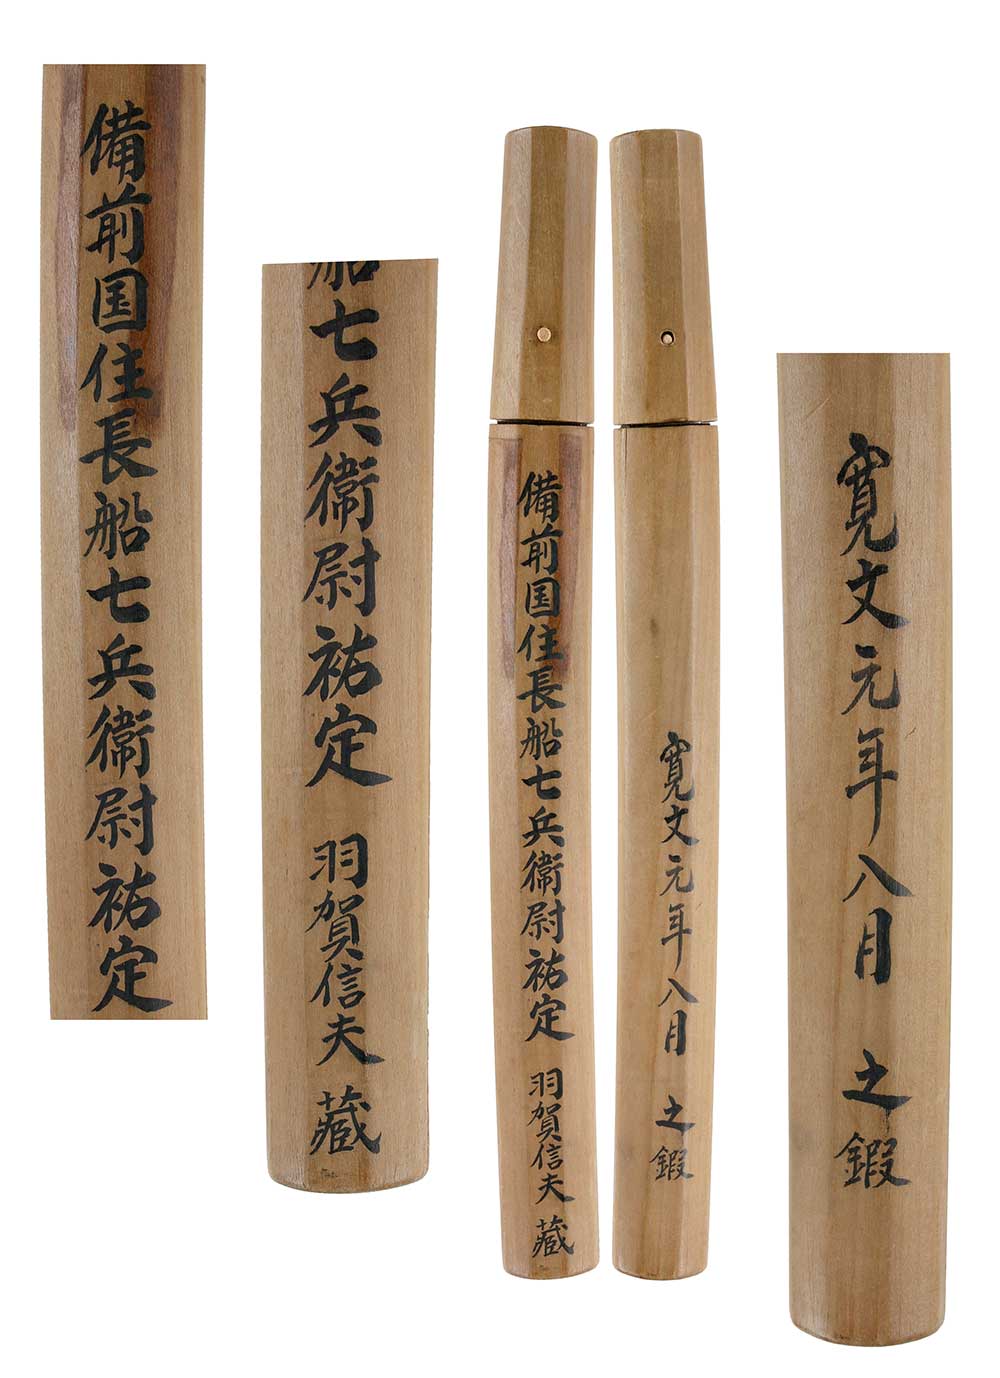 備前国住長船七兵衞尉祐定
船七兵衞尉祐定 羽賀信夫 藏
備前国住長船七兵衞尉祐定 羽賀信夫 藏
寛文元年八月 之鍜
寛文元年八月 之鍜